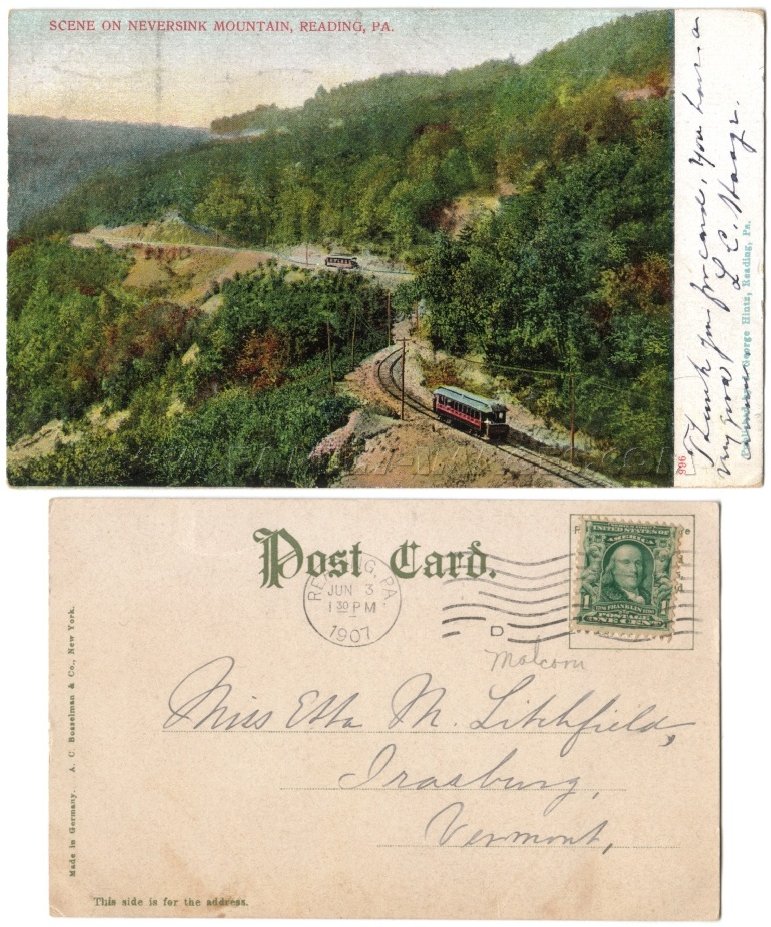 SCENE ON NEVERSINK MOUNTAIN, READING, PA.
Thank you for card, You have
my
L. C.
George Hintz, Reading, Pa.
996
Post Card.
READING, PA.
JUN 3
1 30 PM
1907
D
UNITED STATES OF
AMERICA
1
FRANKLIN
1
POSTAGE
ONE CENT
Malcom
Miss Etta M. Litchfield,
Irasburg,
Vermont,
Made in Germany. A. C. Bosselman & Co., New York.
This side is for the address.